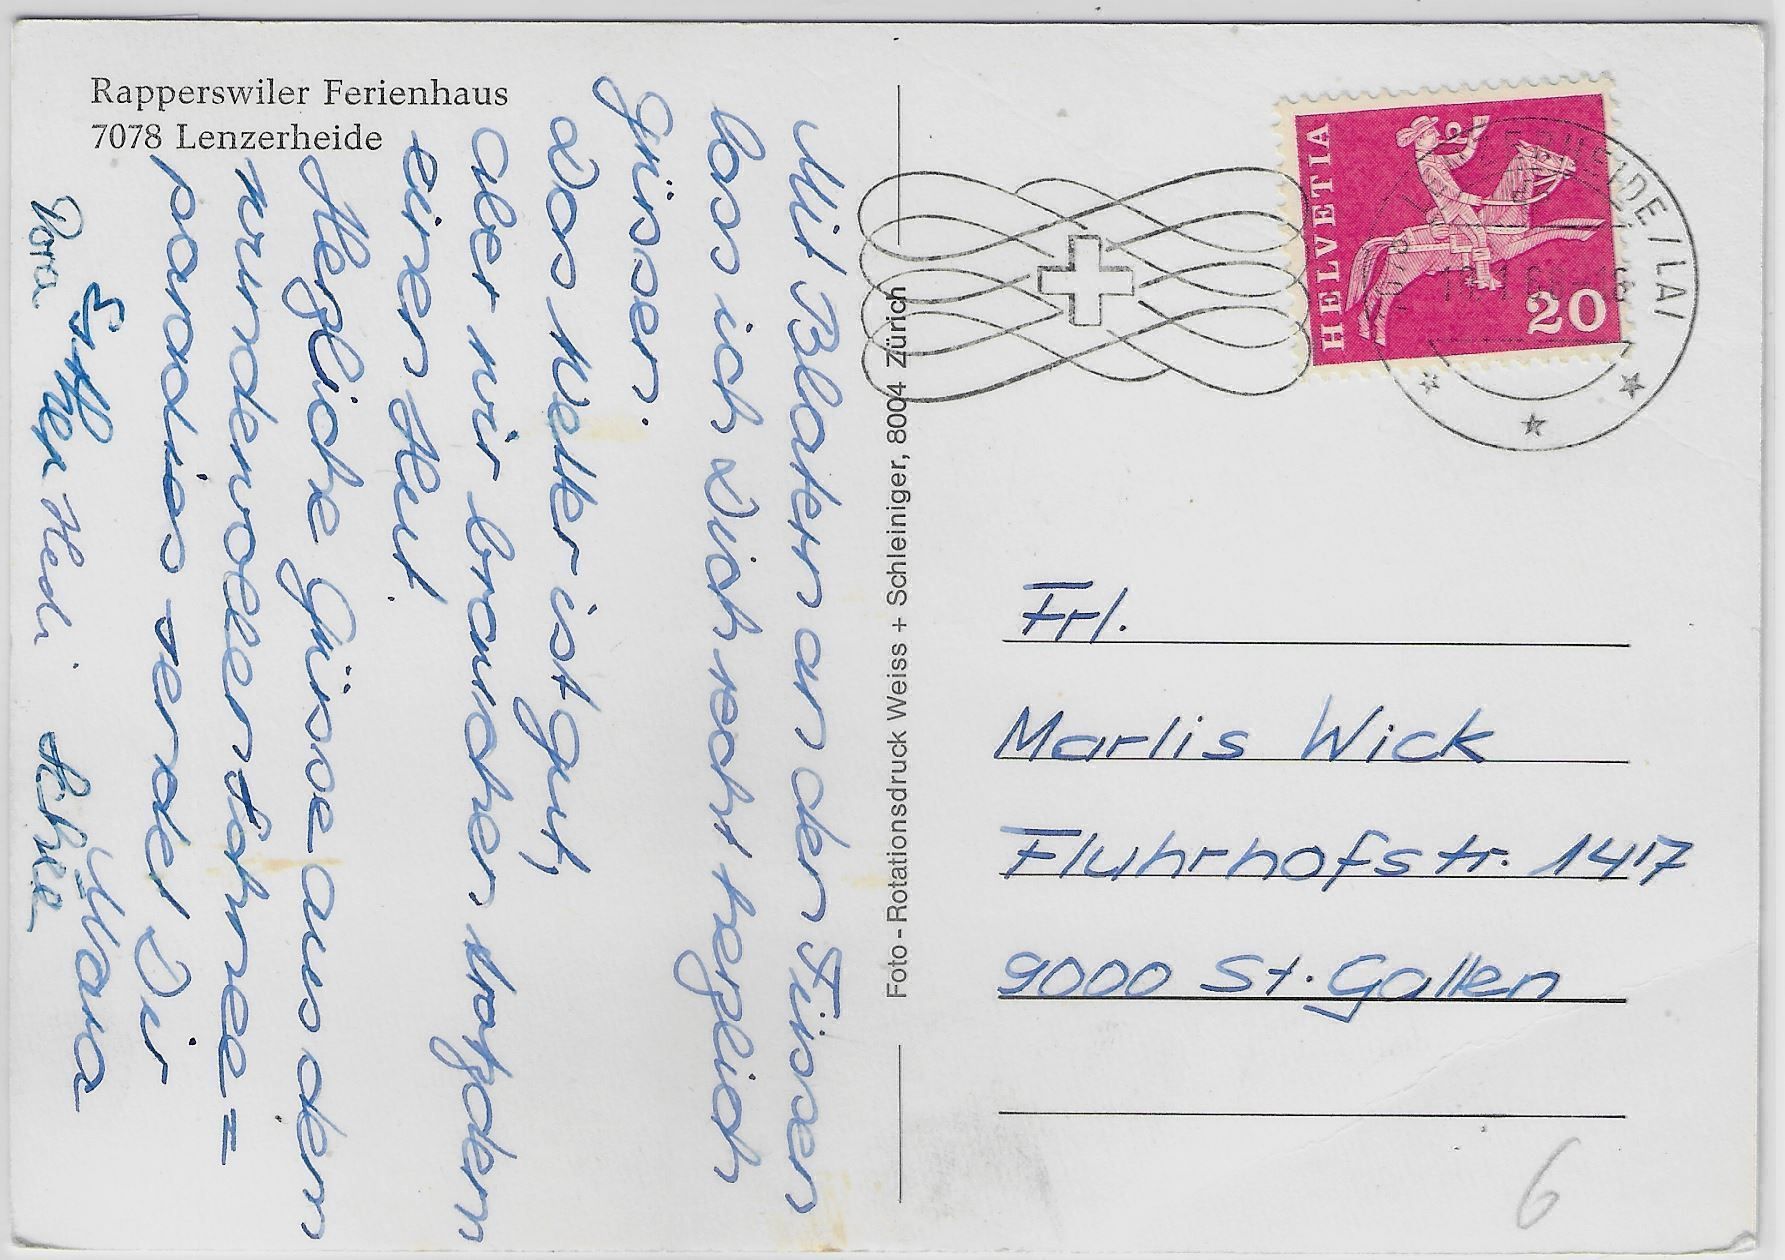 Rapperswiler Ferienhaus
7078 Lenzerheide
Mit Blatern an den Füssen
lass ich Dich recht herzlich
grüssen.
Das Wetter ist gut,
aber wir brauchen trotzdem
einen Hut.
Herzliche Grüsse aus dem
wundervollen Schnee=
paradies sendet Dir
Mara
Esther Hedi
Dora
Foto-Rotationsdruck Weiss + Schleiniger, 8004 Zürich
HELVETIA
20
LENZERHEIDE/LAI
Frl.
Marlis Wick
Fluhrhofstr. 147
9000 St. Gallen
6